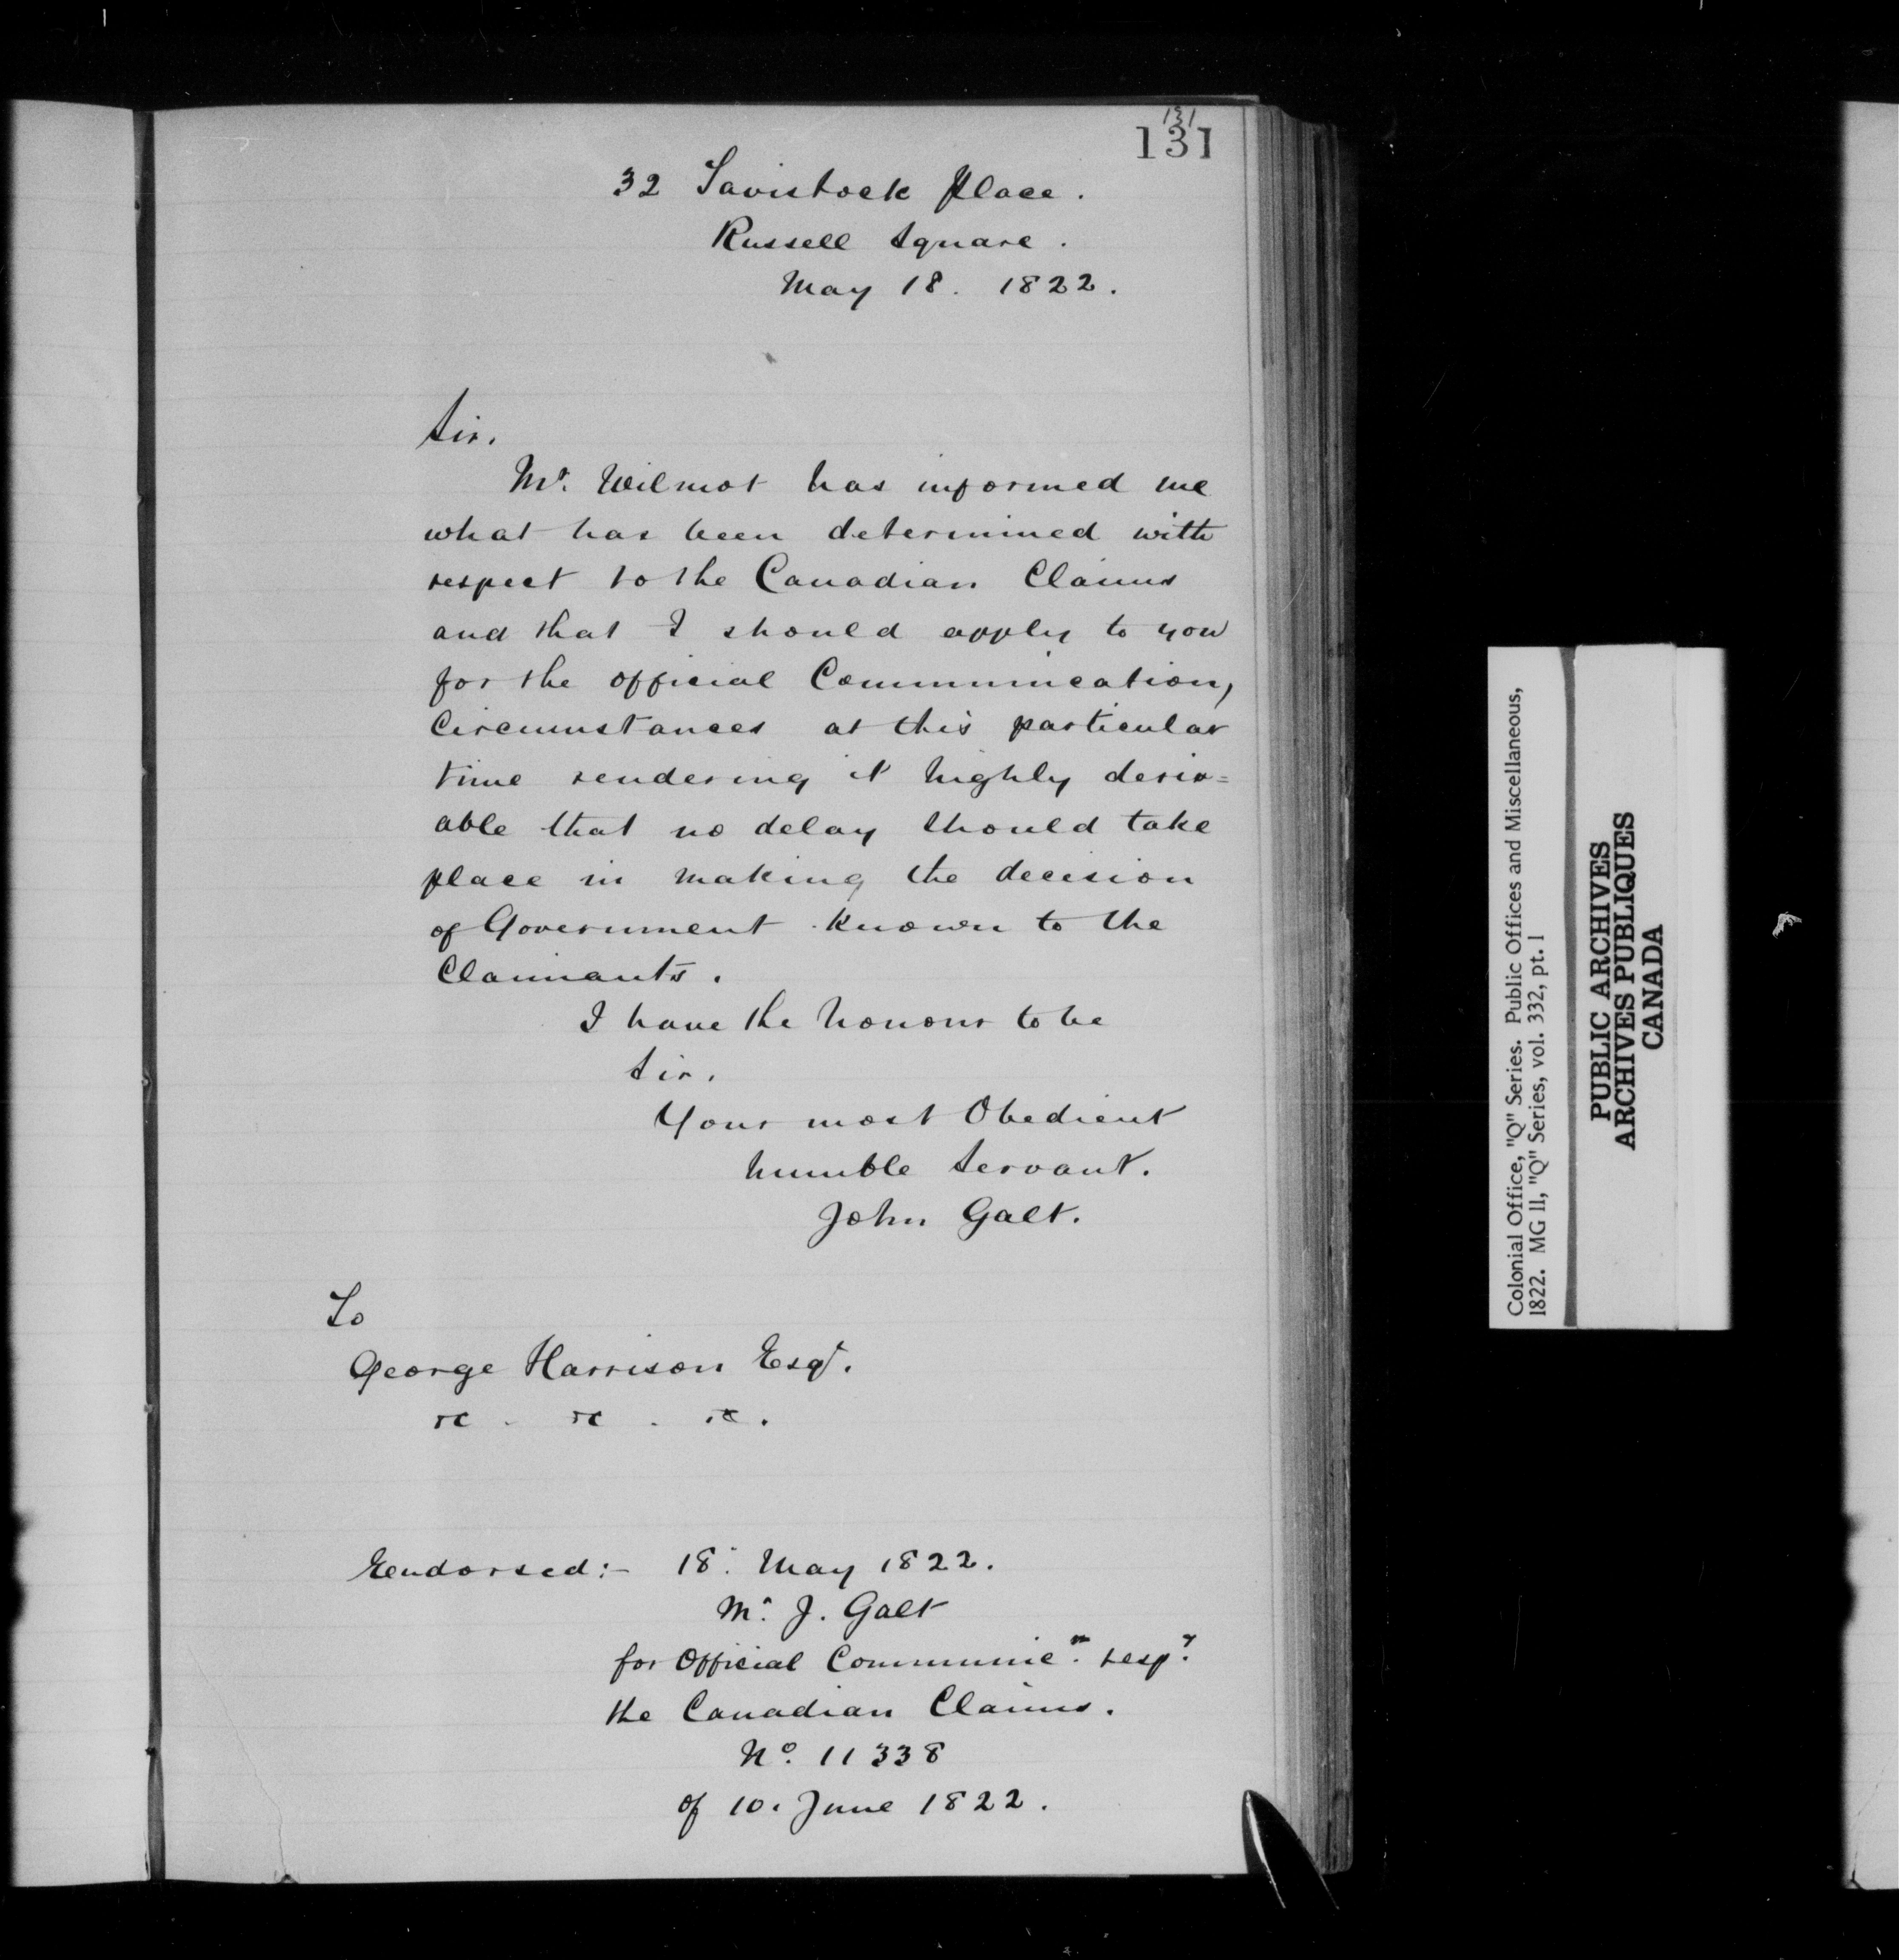 131
131
32 Tavistock Place.
Russell Square.
May 18. 1822.
Sir.
Mr. Wilmot has informed me
what has been determined with
respect to the Canadian Claims
and that I should apply to you
for the official Communication,
Circumstances at this particular
time rendering it highly desir=
able that no delay should take
place in making the decision
of Government known to the
Claimants.
I have the honour to be
Sir.
Your most Obedient
humble Servant.
John Galt.
To
George Harrison Esqr.
&c. &c. &c.
Endorsed:- 18. May 1822.
Mr. J. Galt
for Official Communicn. respg.
the Canadian Claims.
No. 11338
of 10. June 1822.
Colonial Office, "Q" Series. Public Offices and Miscellaneous,
1822. MG 11, "Q" Series, vol. 332, pt. 1
PUBLIC ARCHIVES
ARCHIVES PUBLIQUES
CANADA